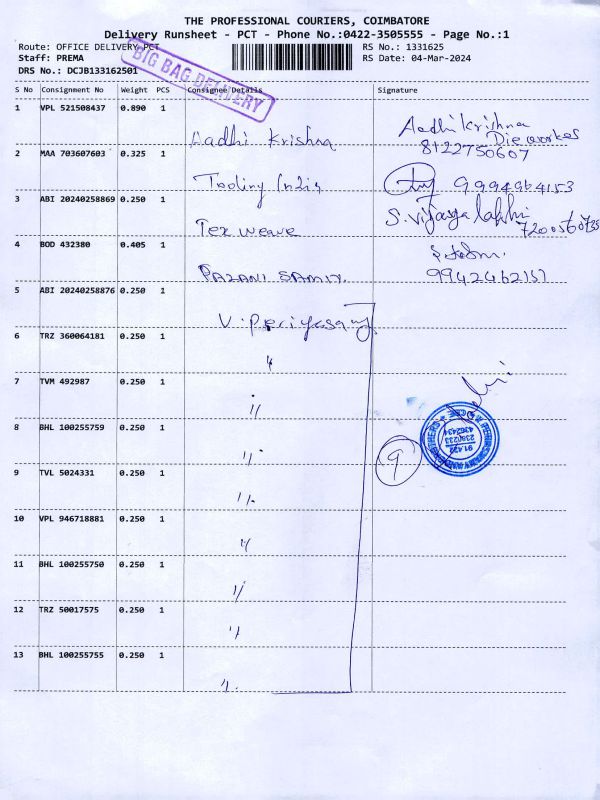 THE PROFESSIONAL COURIERS, COIMBATORE
Delivery Runsheet - PCT - Phone No.:0422-3505555 - Page No.:1
Route: OFFICE DELIVERY PCT
RS No.: 1331625
Staff: PREMA
RS Date: 04-Mar-2024
DRS No.: DCJB133162501
BIG BAG DELIVERY
S No Consignment No Weight PCS Consignee Details Signature
1 VPL 521508437 0.890 1 Aadhi Krishna Aadhi krishna
Die workes
8122750607
2 MAA 703607603 0.325 1 Tooling India 9994964153
3 ABI 20240258869 0.250 1 Tex weave S. Vijaya lakhi
7200560735
4 BOD 432380 0.405 1 PAZANI SAMIY.
9942462151
5 ABI 20240258876 0.250 1 V. Periyasamy
6 TRZ 360064181 0.250 1 "
7 TVM 492987 0.250 1 "
8 BHL 100255759 0.250 1 "
9
9 TVL 5024331 0.250 1 "
10 VPL 946718881 0.250 1 "
11 BHL 100255750 0.250 1 "
12 TRZ 50017575 0.250 1 "
13 BHL 100255755 0.250 1 "